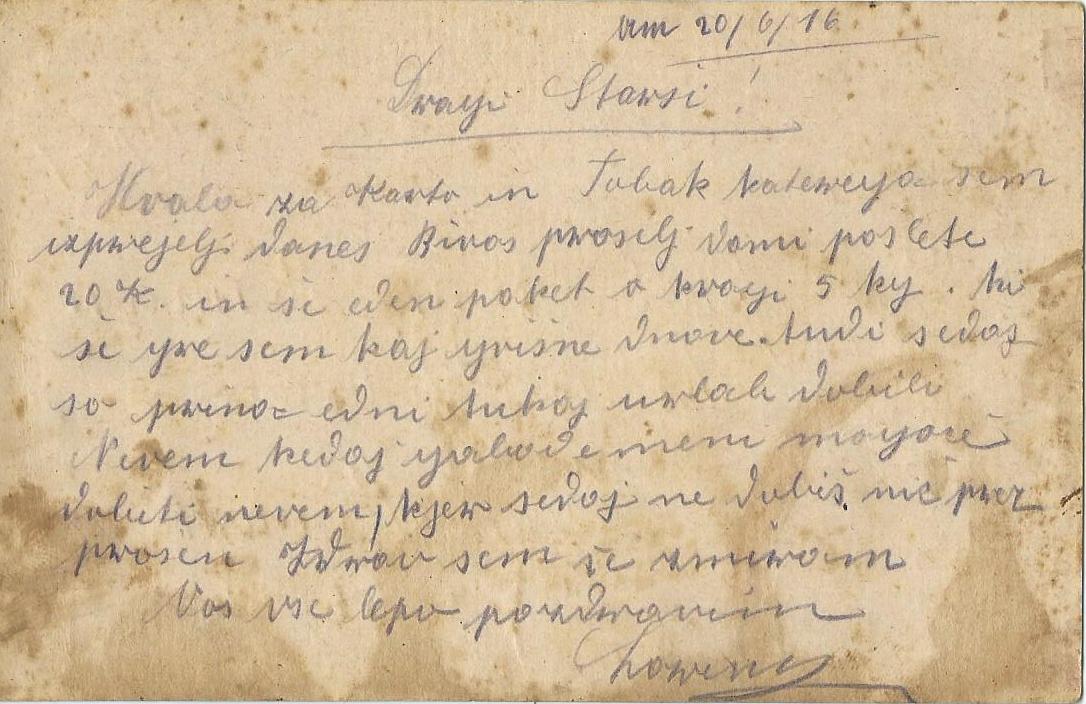 Am 20/6/16
Dragi Starsi!
Hvala za Karto in Tobak katerega sem
izprejelj danes Bi vas proselj domi poslete
20 K. in še eden paket a kvagi 5 kg. ki
še gre sem kaj grišne dnove. tudi sedaj
so prino= edni tukaj urlab dobili
Nevem kedaj gabode meni mogoče
dobiti nevem, kjer sedaj ne dobiš nič prez
prosen Zdrav sem še zmiram
Vas vse lepo pozdravim
Lovrenc